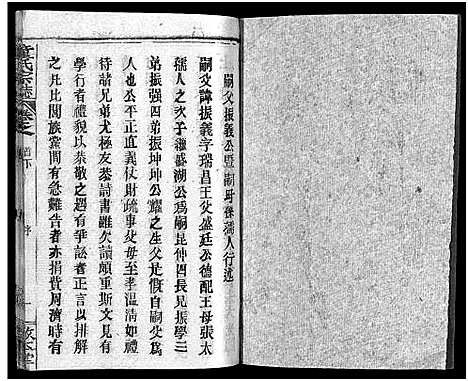 嗣父振義公暨嗣母孫孺人行述
嗣父諱振義字瑞昌王父盛廷公德配王母張太
孺人之次子繼盛湖公爲嗣昆仲四長兄振學三
弟振强四弟振坤坤公耀之生父是慨自嗣父爲
人也公平正直義仗財疏事父母至孝溫淸如儀
待諸兄弟尤極友恭詩書雖欠讀頗重斯文見有
學行者禮貌以恭敬之遇有爭訟者正言以排解
之凡比閭族黨間有急難告者亦捐貲周濟時有
童氏宗誌
卷之
首下
序
一
敦本堂